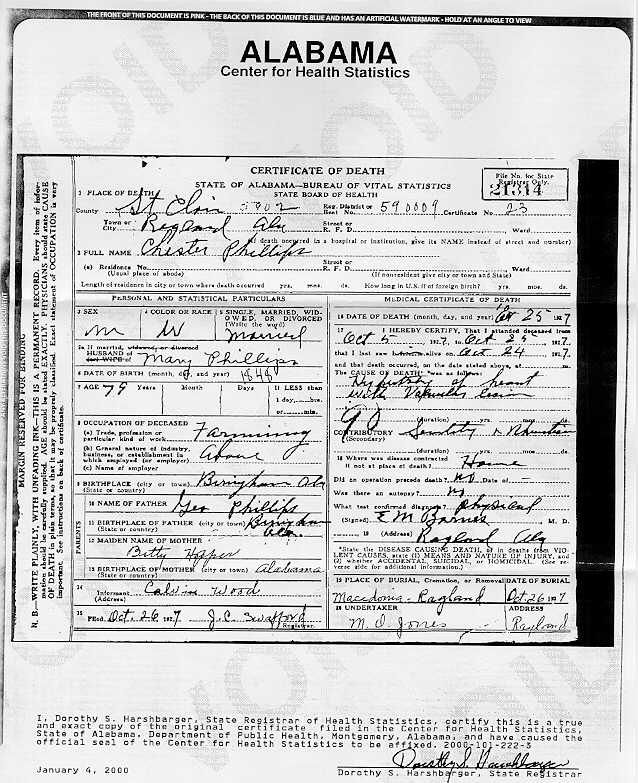 THE FRONT OF THIS DOCUMENT IS PINK - THE BACK OF THIS DOCUMENT IS BLUE AND HAS AN ARTIFICIAL WATERMARK - HOLD AT AN ANGLE TO VIEW
ALABAMA
Center for Health Statistics
MARGIN RESERVED FOR BINDING
N. B.—WRITE PLAINLY, WITH UNFADING INK—THIS IS A PERMANENT RECORD. Every item of information should be carefully supplied. AGE should be stated EXACTLY. PHYSICIANS should state CAUSE OF DEATH in plain terms, so that it may be properly classified. Exact statement of OCCUPATION is very important. See instructions on back of certificate.
CERTIFICATE OF DEATH
STATE OF ALABAMA—BUREAU OF VITAL STATISTICS
STATE BOARD OF HEALTH
File No. for State Registrar Only.
21314
1 PLACE OF DEATH
County St Clair Reg. District or Beat No. 590009 Certificate No. 23
Town or City Ragland Ala Street or R. F. D. Ward
(If death occurred in a hospital or institution, give its NAME instead of street and number)
2 FULL NAME Chester Phillips
(a) Residence No. Street or R. F. D. Ward.
(Usual place of abode) (If nonresident give city or town and State)
Length of residence in city or town where death occurred yrs. mos. ds. How long in U. S. if of foreign birth? yrs. mos. ds.
PERSONAL AND STATISTICAL PARTICULARS
3 SEX M
4 COLOR OR RACE W
5 SINGLE, MARRIED, WIDOWED, OR DIVORCED (Write the word) Married
5a If married, widowed, or divorced
HUSBAND of (or) WIFE of Mary Phillips
6 DATE OF BIRTH (month, day, and year) 1848
7 AGE 79 Years Months Days If LESS than 1 day, hrs. or mts.
8 OCCUPATION OF DECEASED
(a) Trade, profession or particular kind of work Farming
(b) General nature of industry, business, or establishment in which employed (or employer) Above
(c) Name of employer
9 BIRTHPLACE (city or town) (State or country)
PARENTS
10 NAME OF FATHER Geo Phillips
11 BIRTHPLACE OF FATHER (city or town) (State or country) Ala.
12 MAIDEN NAME OF MOTHER
Betty
13 BIRTHPLACE OF MOTHER (city or town) Alabama
(State or country)
14 Informant Calvin Wood
(Address)
15 Filed Oct. 26 1927 J. C. Swafford Registrar.
MEDICAL CERTIFICATE OF DEATH
16 DATE OF DEATH (month, day, and year) Oct 25 1927
17 I HEREBY CERTIFY, That I attended deceased from
Oct 5 1927, to Oct 25 1927.
that I last saw alive on Oct 24 1927.
and that death occurred, on the date stated above, at m.
The CAUSE OF DEATH* was as follows:
of heart
with
(duration) yrs. mos. ds.
CONTRIBUTORY (Secondary) Senility &
(duration) yrs. mos. ds.
18 Where was disease contracted if not at place of death? Home
Did an operation precede death? no Date of
Was there an autopsy? no
What test confirmed diagnosis? physical
(Signed) E M Barnes M. D.
19 (Address) Ragland Ala
*State the DISEASE CAUSING DEATH, or in deaths from VIOLENT CAUSES, state (1) MEANS AND NATURE OF INJURY, and (2) whether ACCIDENTAL, SUICIDAL, or HOMICIDAL. (See reverse side for additional information.)
19 PLACE OF BURIAL, Cremation, or Removal DATE OF BURIAL
Macedonia - Ragland Oct 26 1927
20 UNDERTAKER ADDRESS
M. D. Jones Ragland
I, Dorothy S. Harshbarger, State Registrar of Health Statistics, certify this is a true
and exact copy of the original certificate filed in the Center for Health Statistics,
State of Alabama, Department of Public Health, Montgomery, Alabama, and have caused the
official seal of the Center for Health Statistics to be affixed. 2000-101-222-3
Dorothy S. Harshbarger
January 4, 2000 Dorothy S. Harshbarger, State Registrar
VOID